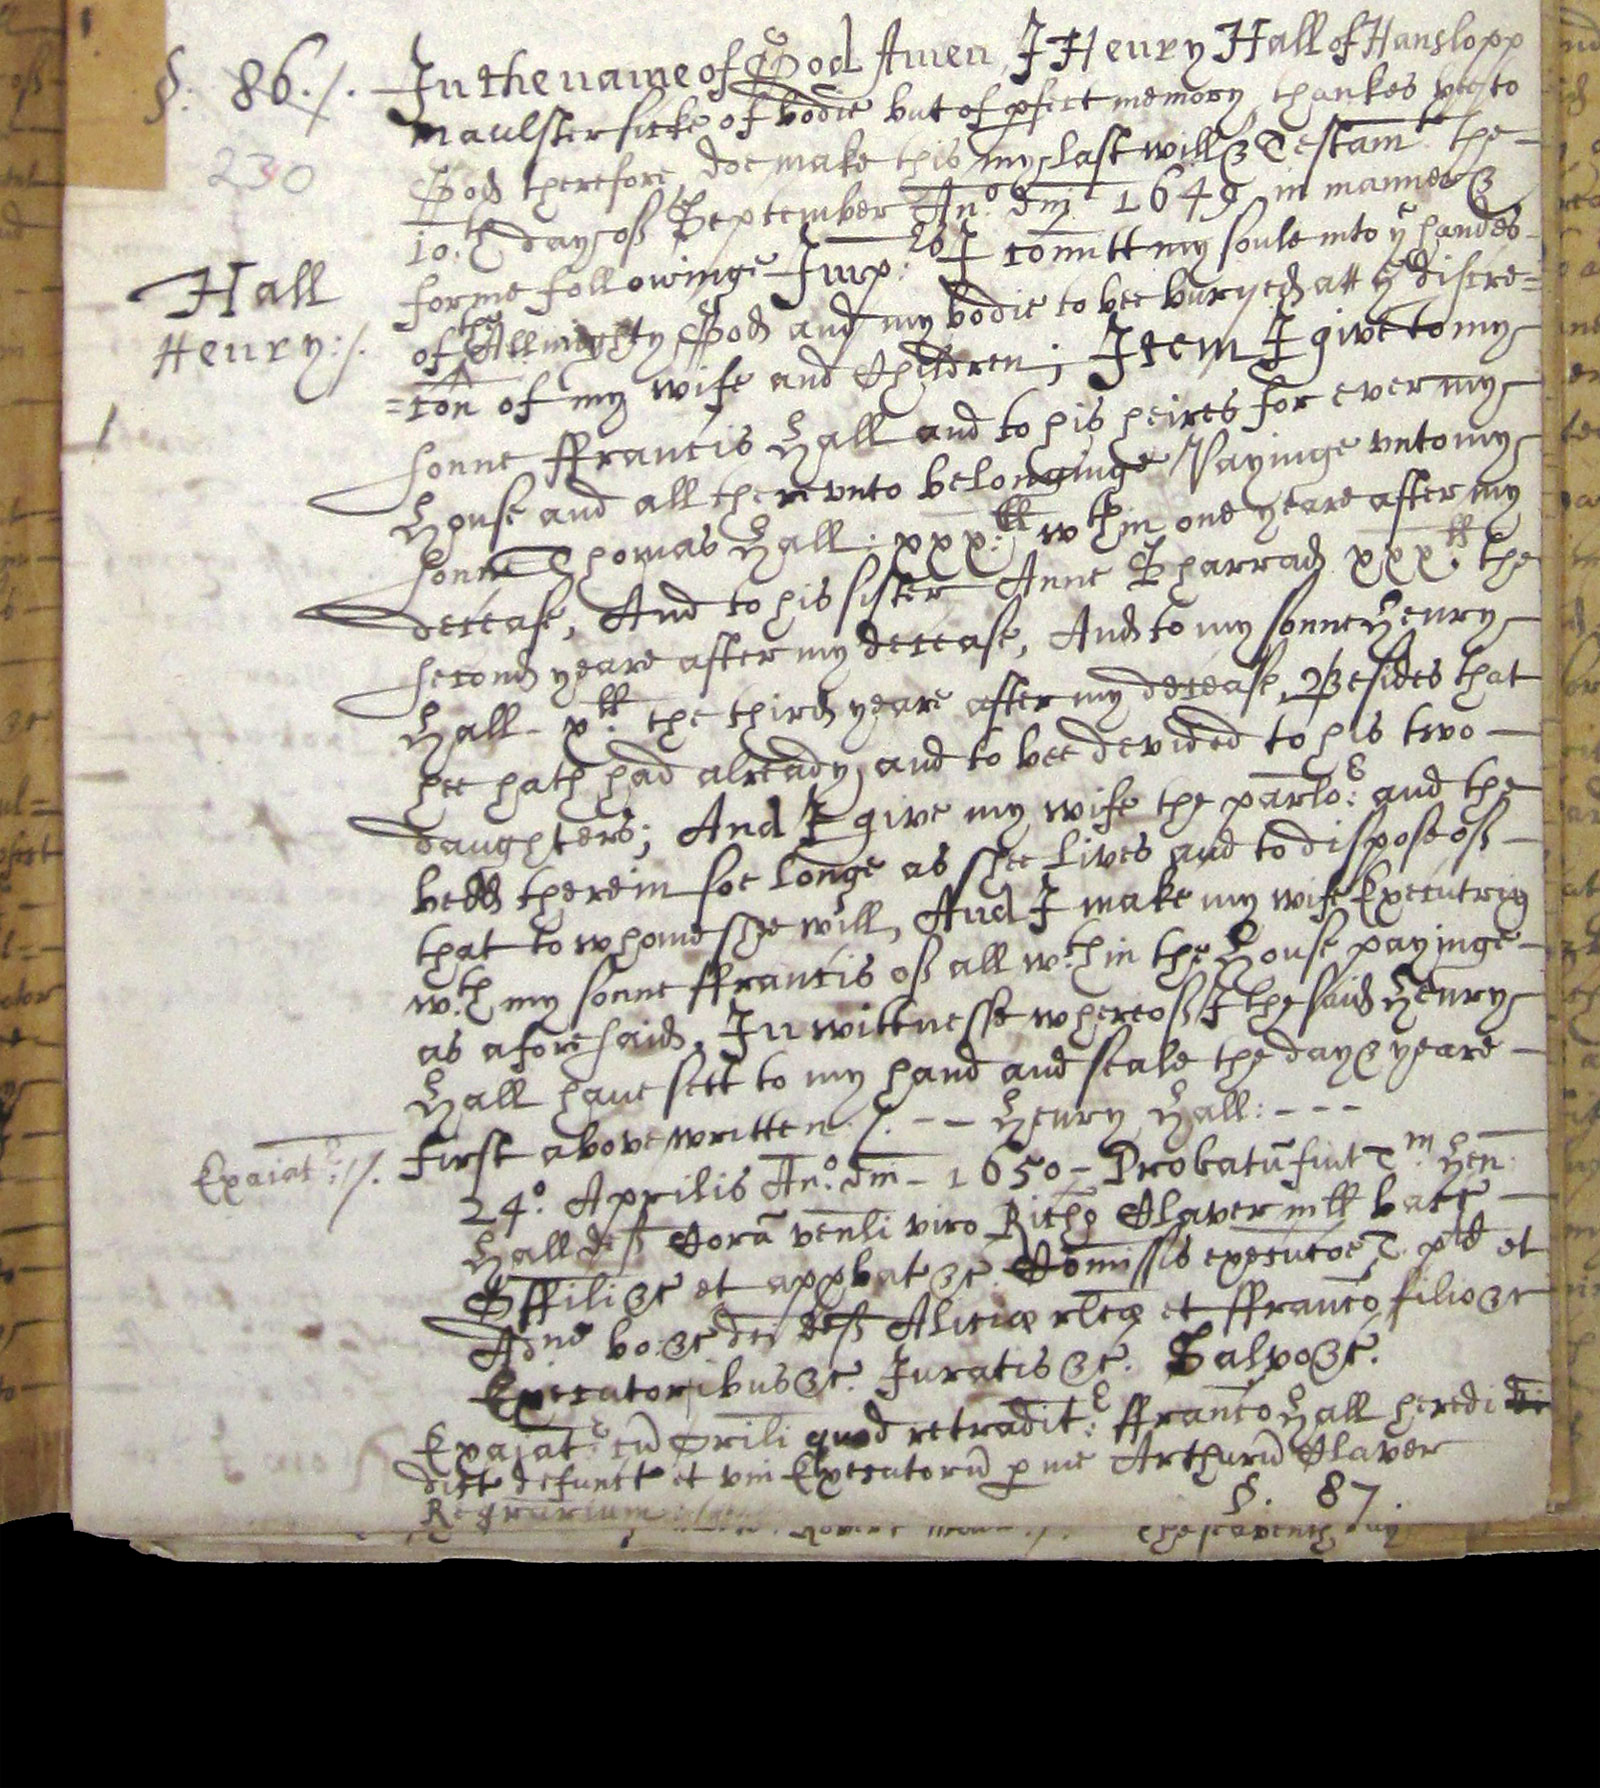 §: 86./.
230
In the name of God Amen, I Henry Hall of Hanslopp
Maulster sicke of bodie but of pfect memory thankes bee to
God therefore, doe make this my last will & Testamte the
10.th day of September Ano: dni 1649 in manner &
forme followinge Imp:is I comitt my soule into ye handes
of the Allmighty God and my bodie to bee buryed att ye discre=
=con of my wife and Children; Item I give to my
Hall
Henry:/.
sonne ffrancis Hall and to his heires for ever my
House and all therevnto belonginge Payinge vnto my
sonne Thomas Hall: xxx:ll wthin one yeare after my
decease, And to his sister Anne Sharrad xxx.ll the
second yeare after my decease, And to my sonne Henry
Hall - x:ll the third yeare after my decease, Besides that
hee hath had already, and to bee devided to his two
daughters; And I give my wife the parlor: and the
bedd therein soe longe as shee lives and to dispose of
that to whome shee will, And I make my wife Executrix
w.th my sonne ffrancis of all w.thin the House payinge
as aforesaid, In wittnesse whereof I the said Henry
Hall have sett to my hand and seale the day & yeare
first above written /. - - Henry Hall: - - -
Exaiatr:/.
24o: Aprilis Ano: dni - 1650 - Probatu fuit Tm: Hen:
Hall def Cora venli viro Richo Claver mll bacc
Offili &c et appbat &c. Comissis execucoe T. pd et
Adne bo: &c dci def Aliciæ rlcæ et ffranco filio &c
Executoribus &c. Juratis &c. Salvo &c.
Exaiatr: cu orili quod retraditr: ffranco Hall heredi
dict defunct et vni Executoru p me Arthuru Claver
Regrarium
§. 87.
The seaventh day